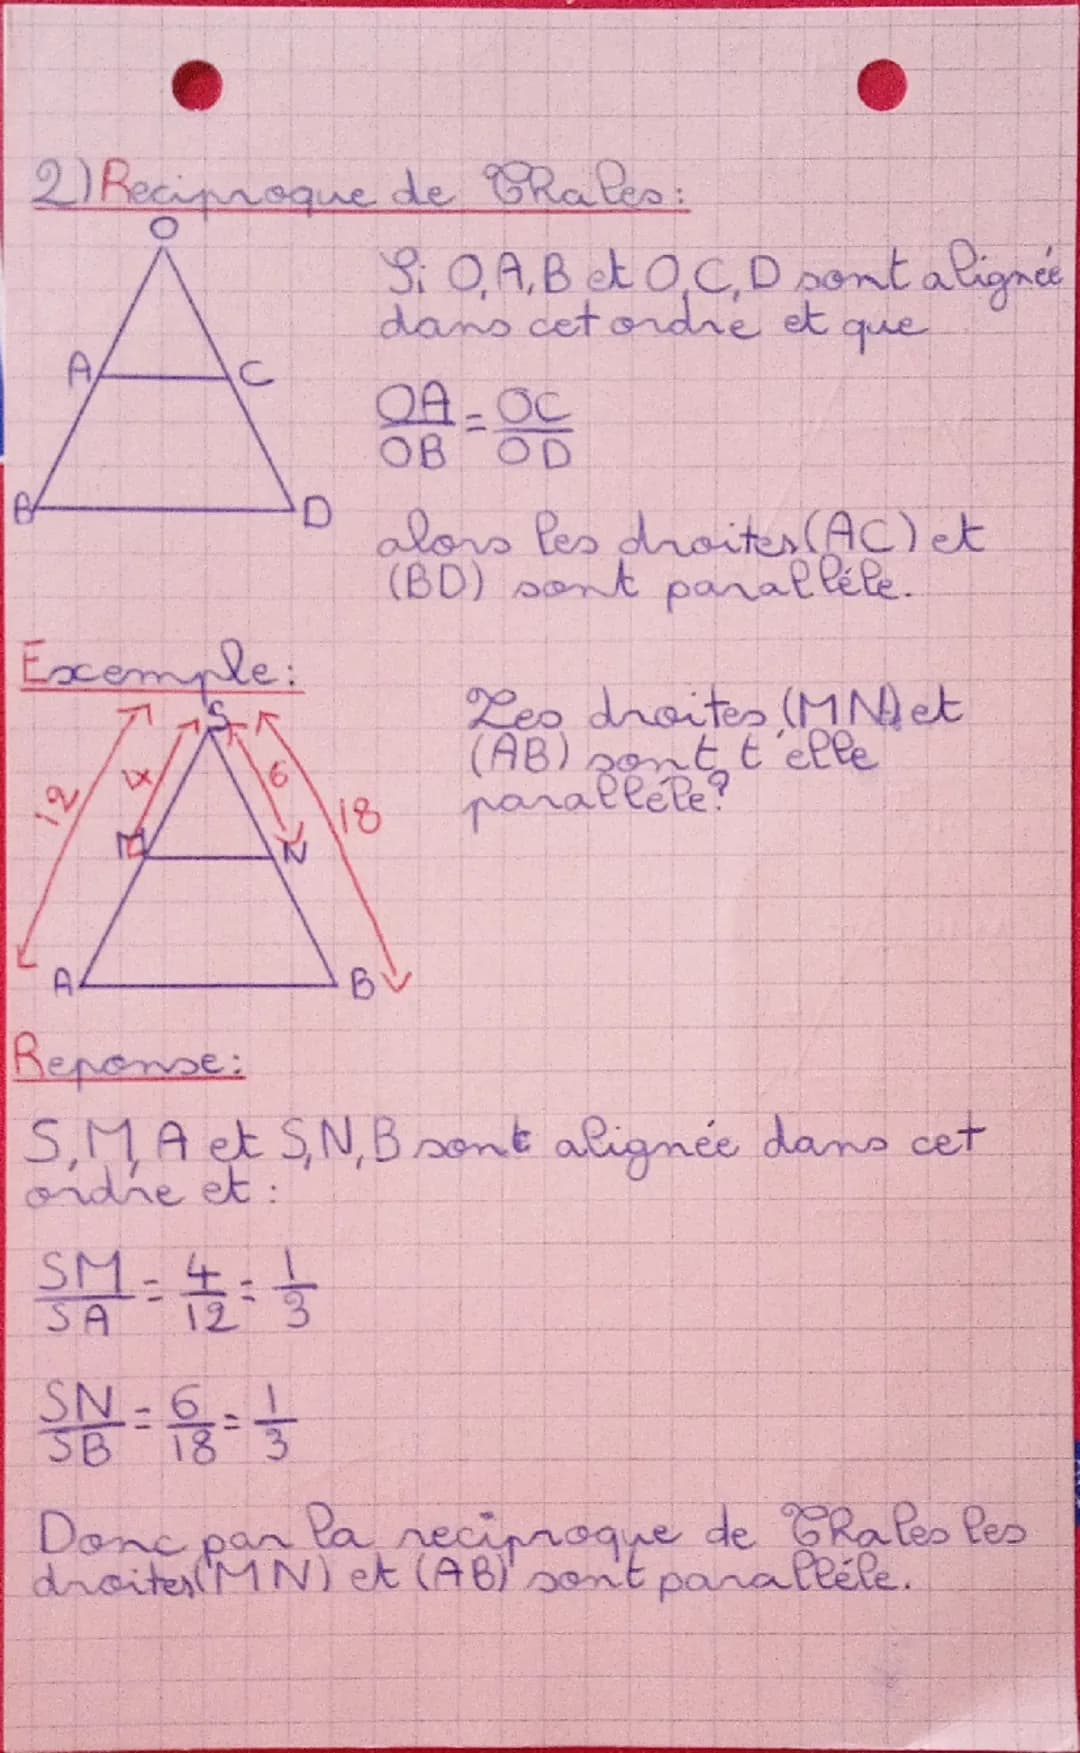 2) Reciproque de Thales:
O
A
C
B
D
Si O, A, B et O, C, D sont alignée
dans cet ordre et que
OA/OB = OC/OD
alors les droites (AC) et
(BD) sont paralléle.
Exemple:
S
12
4
6
18
M
N
A
B
Les droites (MN) et
(AB) sont t'elle
paralléle?
Reponse:
S, M, A et S, N, B sont alignée dans cet
ordre et :
SM/SA = 4/12 = 1/3
SN/SB = 6/18 = 1/3
Donc par la reciproque de Thales les
droites (MN) et (AB) sont paralléle.